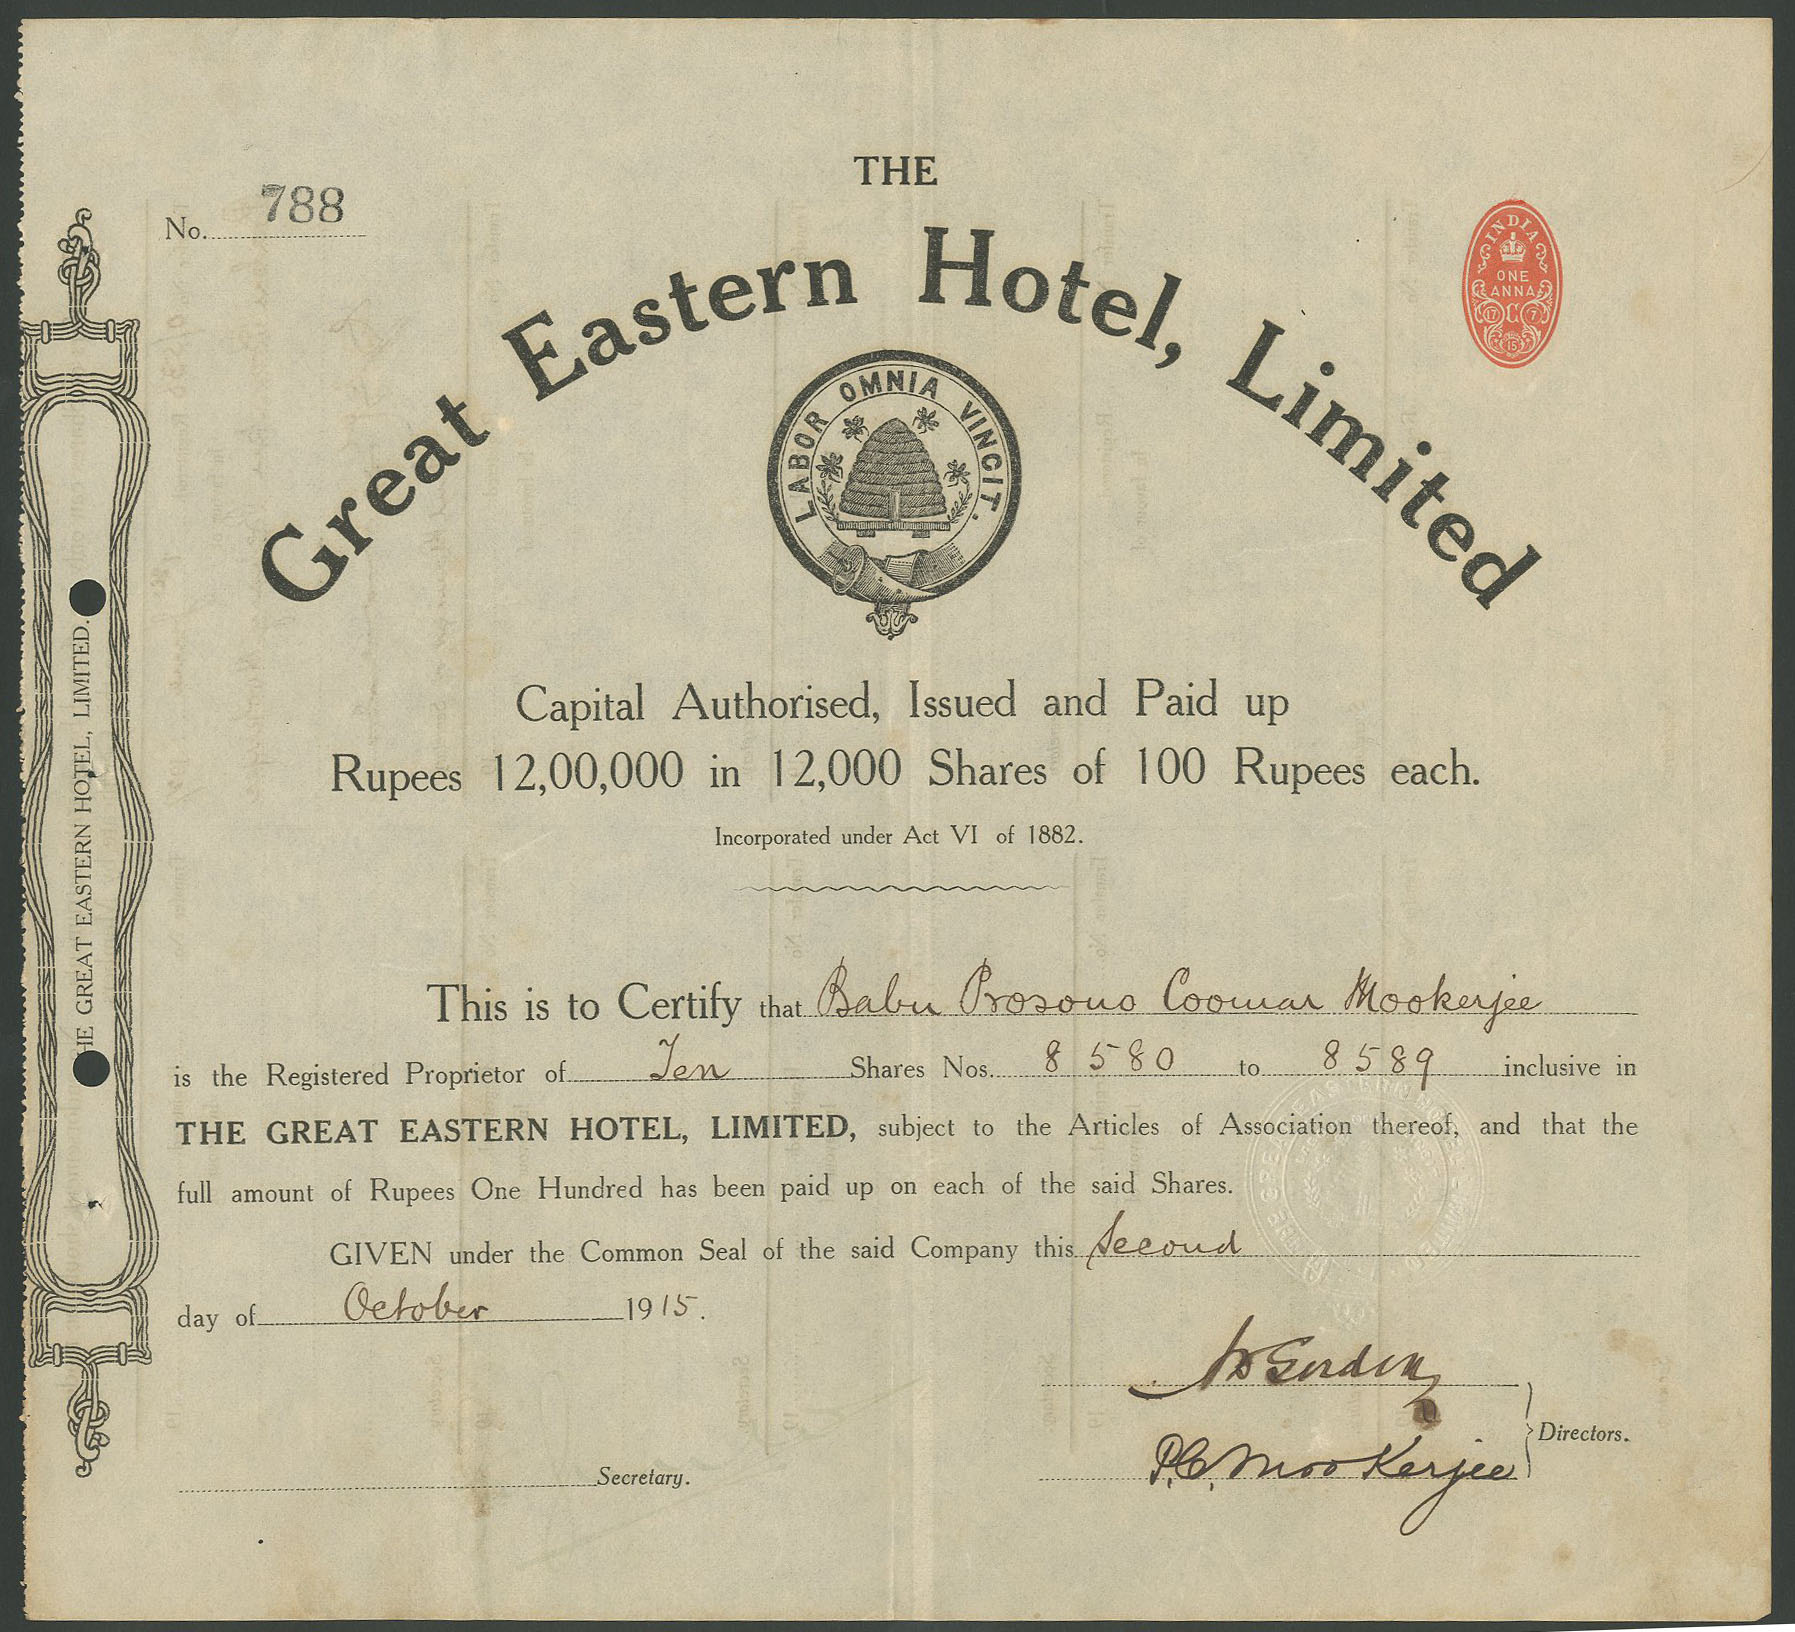 THE
No. 788
Great Eastern Hotel, Limited
INDIA
ONE
ANNA
17 C 7
15
LABOR OMNIA VINCIT.
Capital Authorised, Issued and Paid up
Rupees 12,00,000 in 12,000 Shares of 100 Rupees each.
Incorporated under Act VI of 1882.
This is to Certify that Babu Prosono Coomar Mookerjee
is the Registered Proprietor of Ten Shares Nos. 8580 to 8589 inclusive in
THE GREAT EASTERN HOTEL, LIMITED, subject to the Articles of Association thereof, and that the
full amount of Rupees One Hundred has been paid up on each of the said Shares.
GIVEN under the Common Seal of the said Company this Second
day of October 1915.
Gordon
P.C. Mookerjee
Directors.
Secretary.
HE GREAT EASTERN HOTEL, LIMITED.